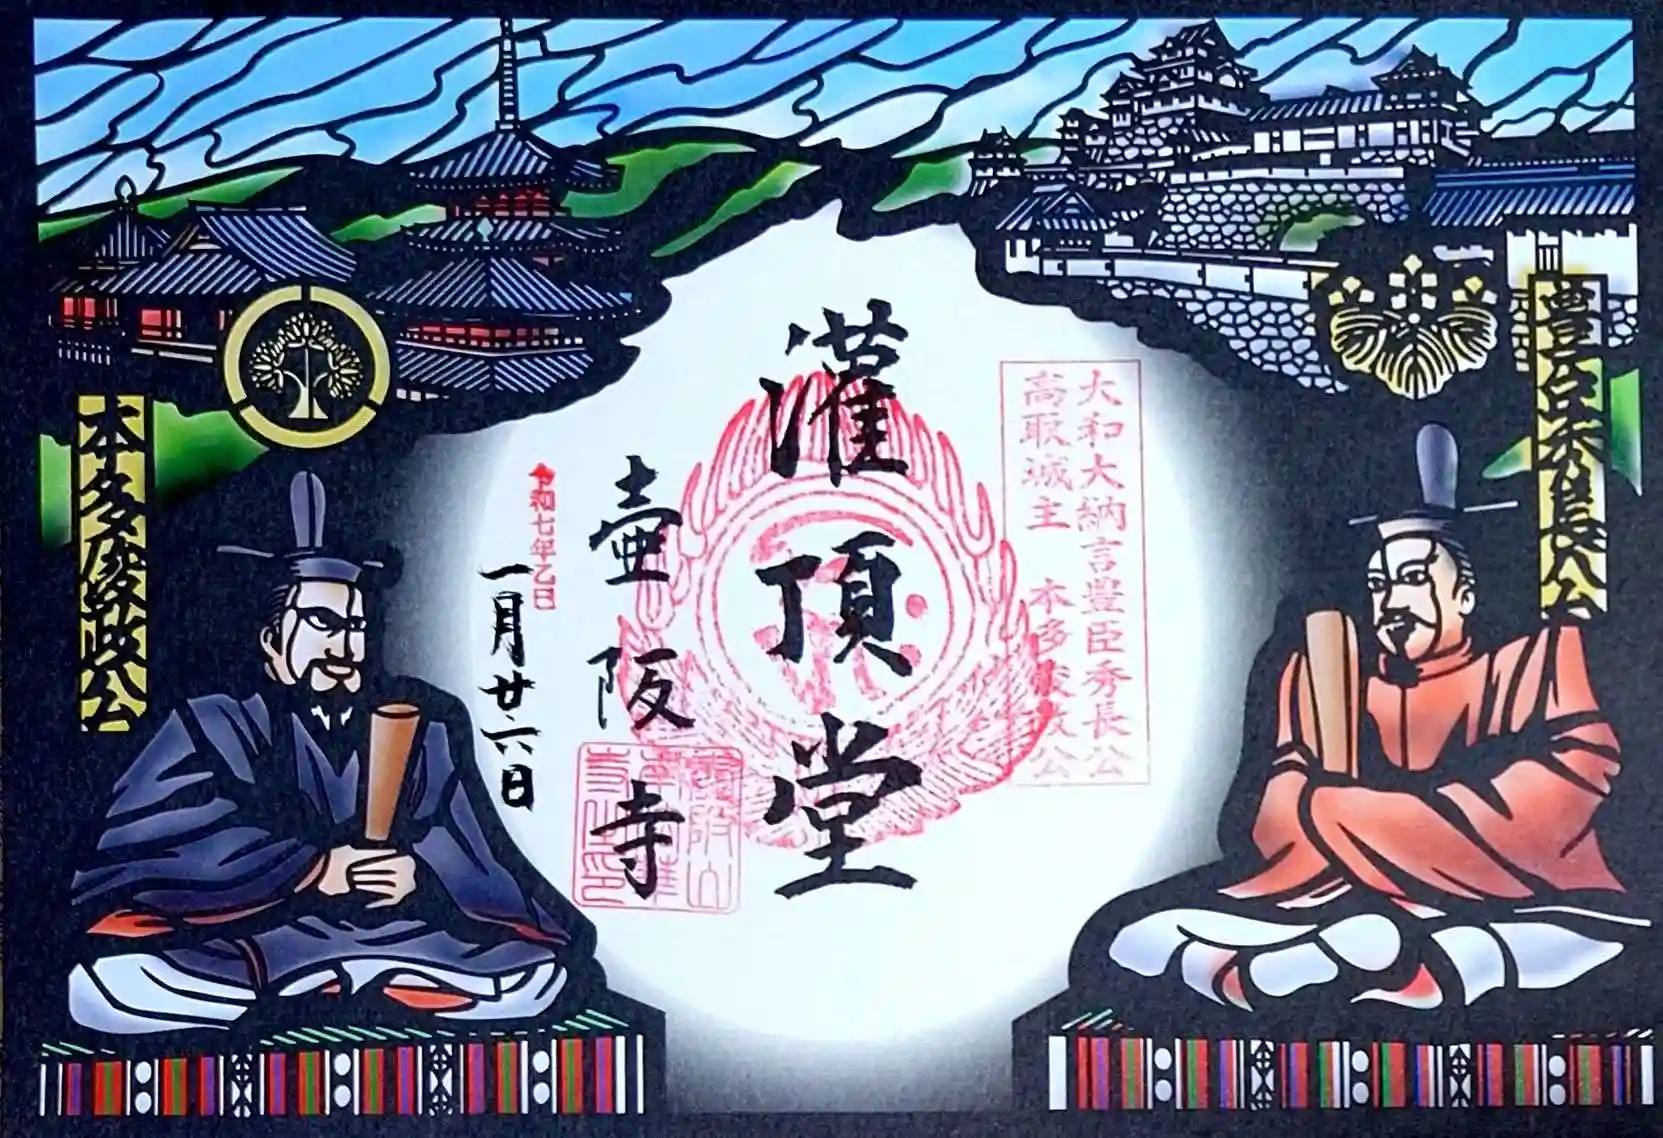 豊臣秀長公
大和大納言豊臣秀長公
高取城主 本多俊政公
灌頂堂
壷阪寺
令和七年乙巳
一月廿六日
本多俊政公